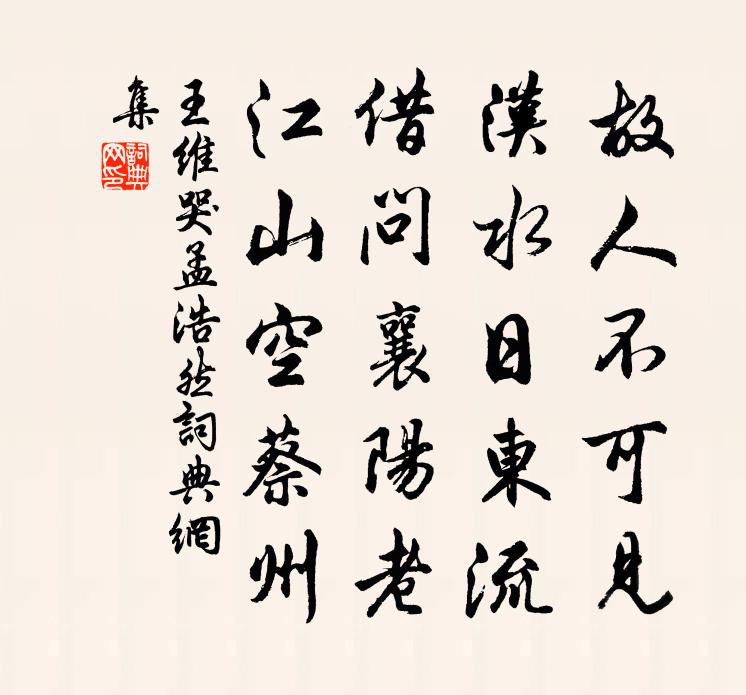 故人不可見
漢水日東流
借問襄陽老
江山空蔡州
王維哭孟浩然詞典網
集
詞典
网印